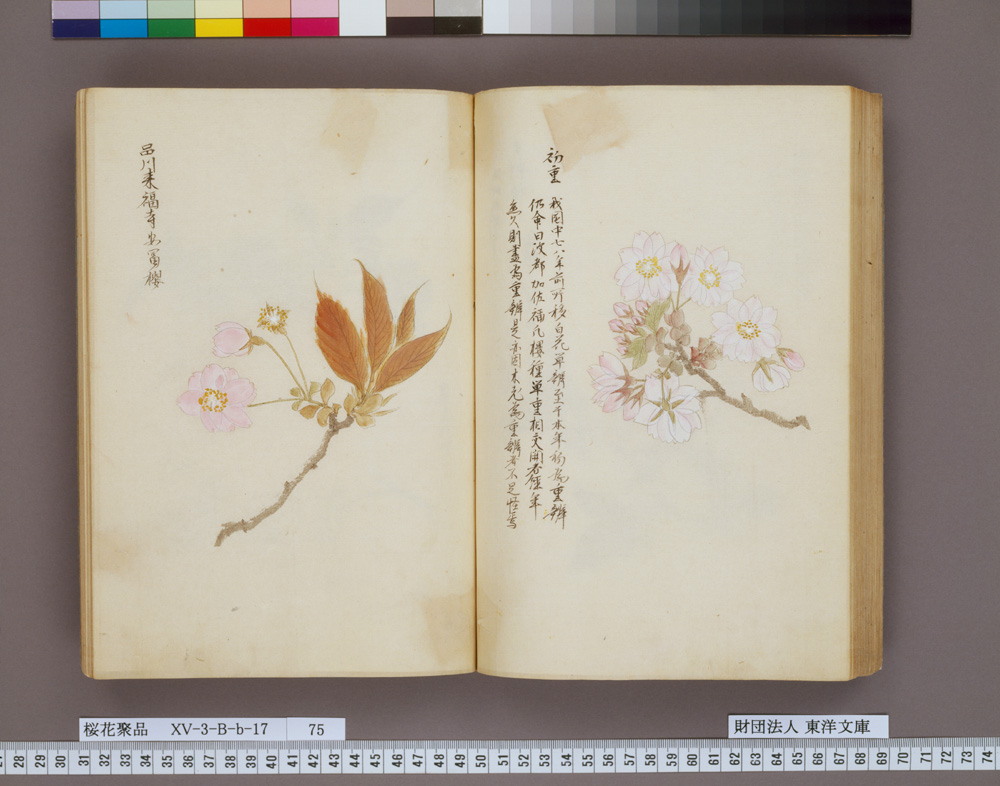 初重
我園中七八年前所移白花單瓣至于本年初為重瓣
仍命曰 加佐 氏櫻種單重相交開 年
則盡為重瓣是 園 元為重瓣者不足怪焉
品川来福寺 櫻
桜花聚品 XV-3-B-b-17 75
財団法人 東洋文庫
28 29 30 31 32 33 34 35 36 37 38 39 40 41 42 43 44 45 46 47 48 49 50 51 52 53 54 55 56 57 58 59 60 61 62 63 64 65 66 67 68 69 70 71 72 73 74